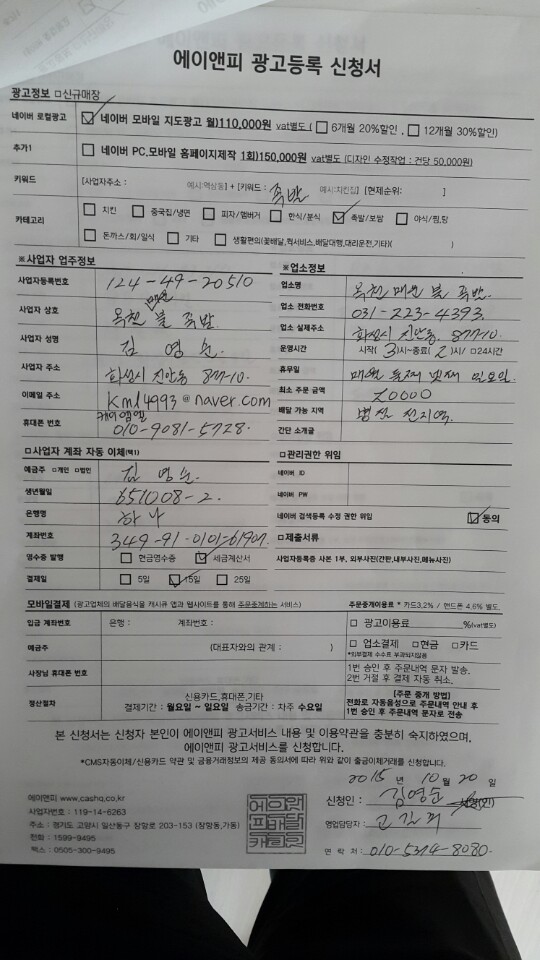 에이앤피 광고등록 신청서
광고정보 □신규매장
네이버 로컬광고 ☑ 네이버 모바일 지도광고 월)110,000원 vat별도 ( □ 6개월 20%할인 , □ 12개월 30%할인)
추가1 □ 네이버 PC,모바일 홈페이지제작 1회)150,000원 vat별도 (디자인 수정작업 : 건당 50,000원)
키워드 [사업자주소 : 예시:역삼동] + [키워드 : 족발 예시:치킨집] [현재순위: ]
카테고리 □ 치킨 □ 중국집/냉면 □ 피자/햄버거 □ 한식/분식 ☑ 족발/보쌈 □ 야식/찜,탕
□ 돈까스/회/일식 □ 기타 □ 생활편의(꽃배달,퀵서비스,배달대행,대리운전,기타)( )
※사업자 업주정보
사업자등록번호 124-49-20510
사업자 상호 옥천 매운 불 족발
사업자 성명 김 영순
사업자 주소 화성시 진안동 877-10.
이메일 주소 kml4993@naver.com
케이엠엘
휴대폰 번호 010-9081-5728.
※업소정보
업소명 옥천 매운 불 족발.
업소 전화번호 031-223-4393
업소 실제주소 화성시 진안동. 877-10.
운영시간 시작(3)시~종료(2)시/ □24시간
휴무일 매월 둘째 넷째 일요일.
최소 주문 금액 20000
배달 가능 지역 병점 전지역.
간단 소개글
□사업자 계좌 자동 이체(택1)
예금주 □개인 □법인 김 영순.
생년월일 651008-2.
은행명 하나
계좌번호 349-91-0101-61907.
영수증 발행 □ 현금영수증 ☑ 세금계산서
결제일 □ 5일 ☑ 15일 □ 25일
□관리권한 위임
네이버 ID
네이버 PW
네이버 검색등록 수정 권한 위임 ☑ 동의
□제출서류
사업자등록증 사본 1부, 외부사진(간판,내부사진,메뉴사진)
모바일결제 (광고업체의 배달음식을 캐시큐 앱과 웹사이트를 통해 주문중계하는 서비스) 주문중개이용료 * 카드3.2% / 핸드폰 4.6% 별도.
입금 계좌번호 은행 : 계좌번호 : □ 광고이용료 %(vat별도)
예금주 (대표자와의 관계 : ) □ 업소결제 □현금 □카드
*외부결제 수수료 부과되지않음
사장님 휴대폰 번호 1번 승인 후 주문내역 문자 발송.
2번 거절 후 결제 자동 취소.
정산절차 신용카드,휴대폰,기타
결제기간 : 월요일 ~ 일요일 송금기간 : 차주 수요일
[주문 중개 방법]
전화로 자동음성으로 주문내역 안내 후
1번 승인 후 주문내역 문자로 전송
본 신청서는 신청자 본인이 에이앤피 광고서비스 내용 및 이용약관을 충분히 숙지하였으며,
에이앤피 광고서비스를 신청합니다.
*CMS자동이체/신용카드 약관 및 금융거래정보의 제공 동의서에 따라 위와 같이 출금이체거래를 신청합니다.
2015 년 10 월 20 일
신청인 : 김영순
영업담당자 : 고길미
연 락 처 : 010-5374-8080.
에이앤피 www.cashq.co.kr
사업자번호 : 119-14-6263
주소 : 경기도 고양시 일산동구 장항로 203-153 (장항동,가동)
전화 : 1599-9495
팩스 : 0505-300-9495
에이앤
피배달
캐쉬큐